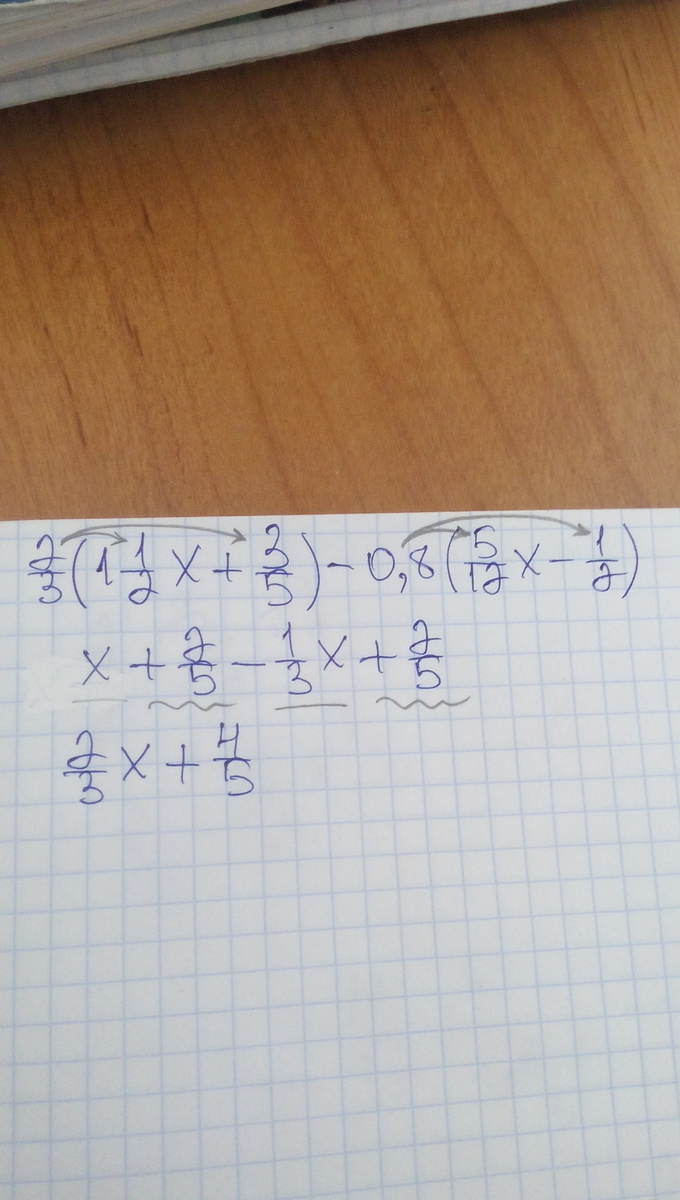 2/3(1 1/2 x + 3/5) - 0,8(5/12 x - 1/2)
x + 2/5 - 1/3 x + 2/5
2/3 x + 4/5